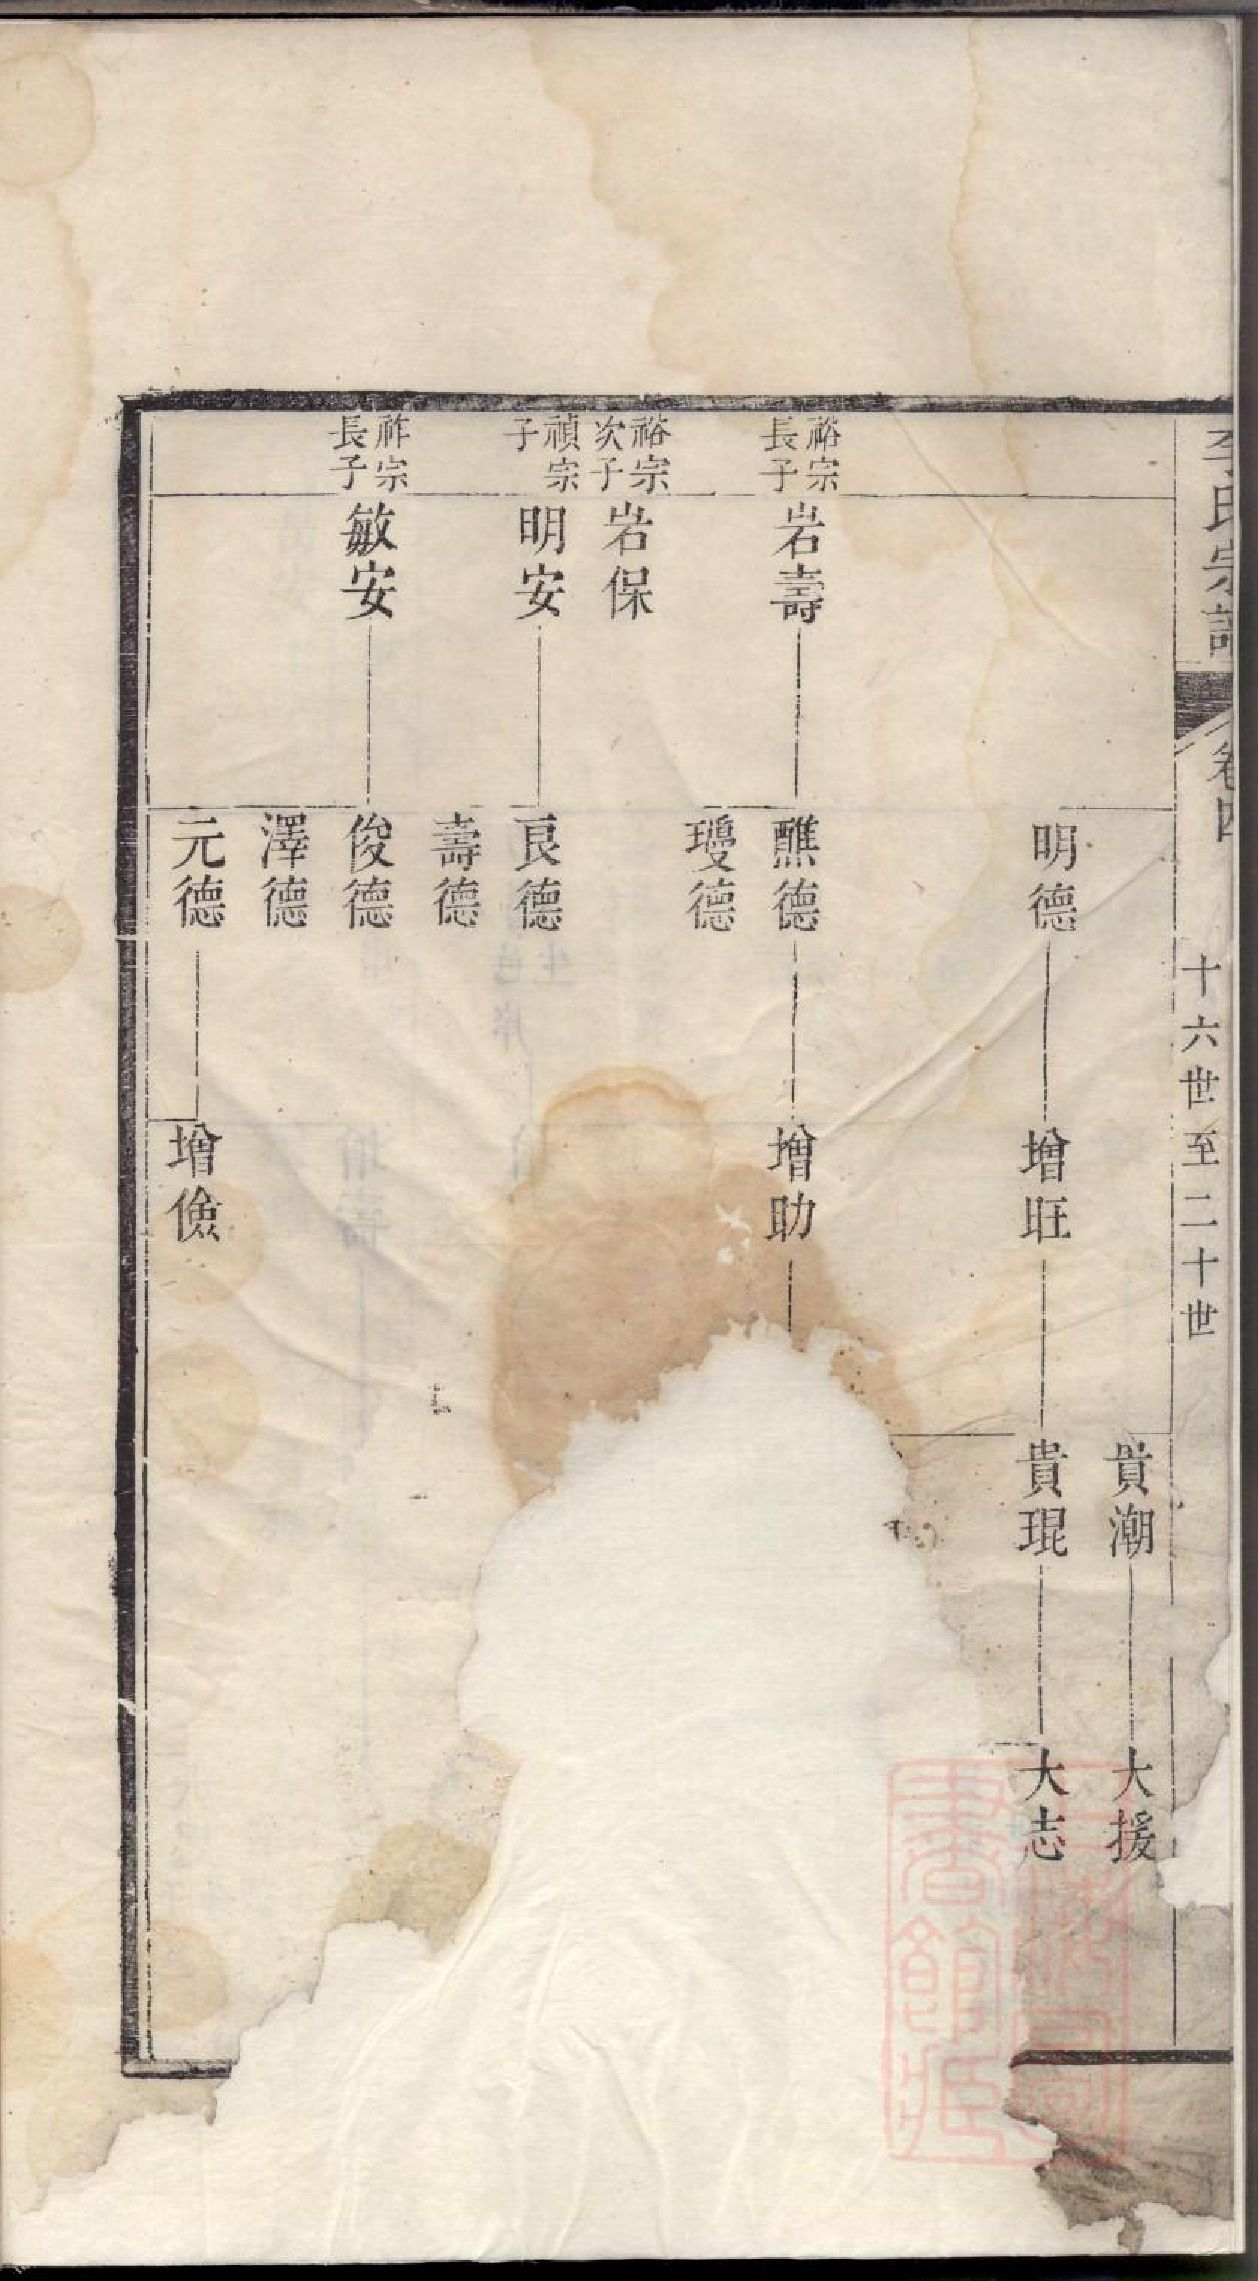 李氏宗譜
卷四
十六世至二十世
貴潮
大援
明德
增旺
貴琨
大志
裕宗
長子
岩壽
醮德
增助
瓊德
裕宗
次子
岩保
禎宗
子
明安
良德
壽德
祚宗
長子
敏安
俊德
澤德
元德
增儉